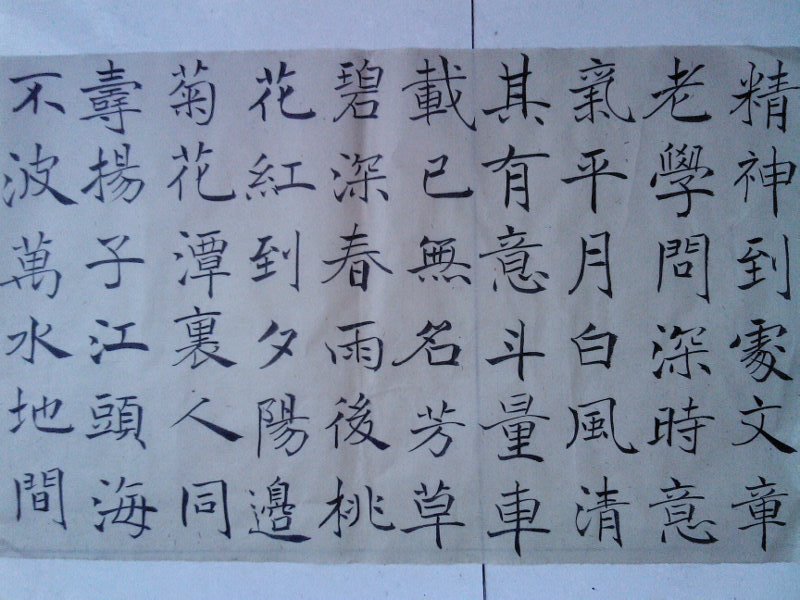 精神到處文章
老學問深時意
氣平月白風清
其有意斗量車
載已無名芳草
碧深春雨後桃
花紅到夕陽邊
菊花潭裏人同
壽揚子江頭海
不波萬水地間